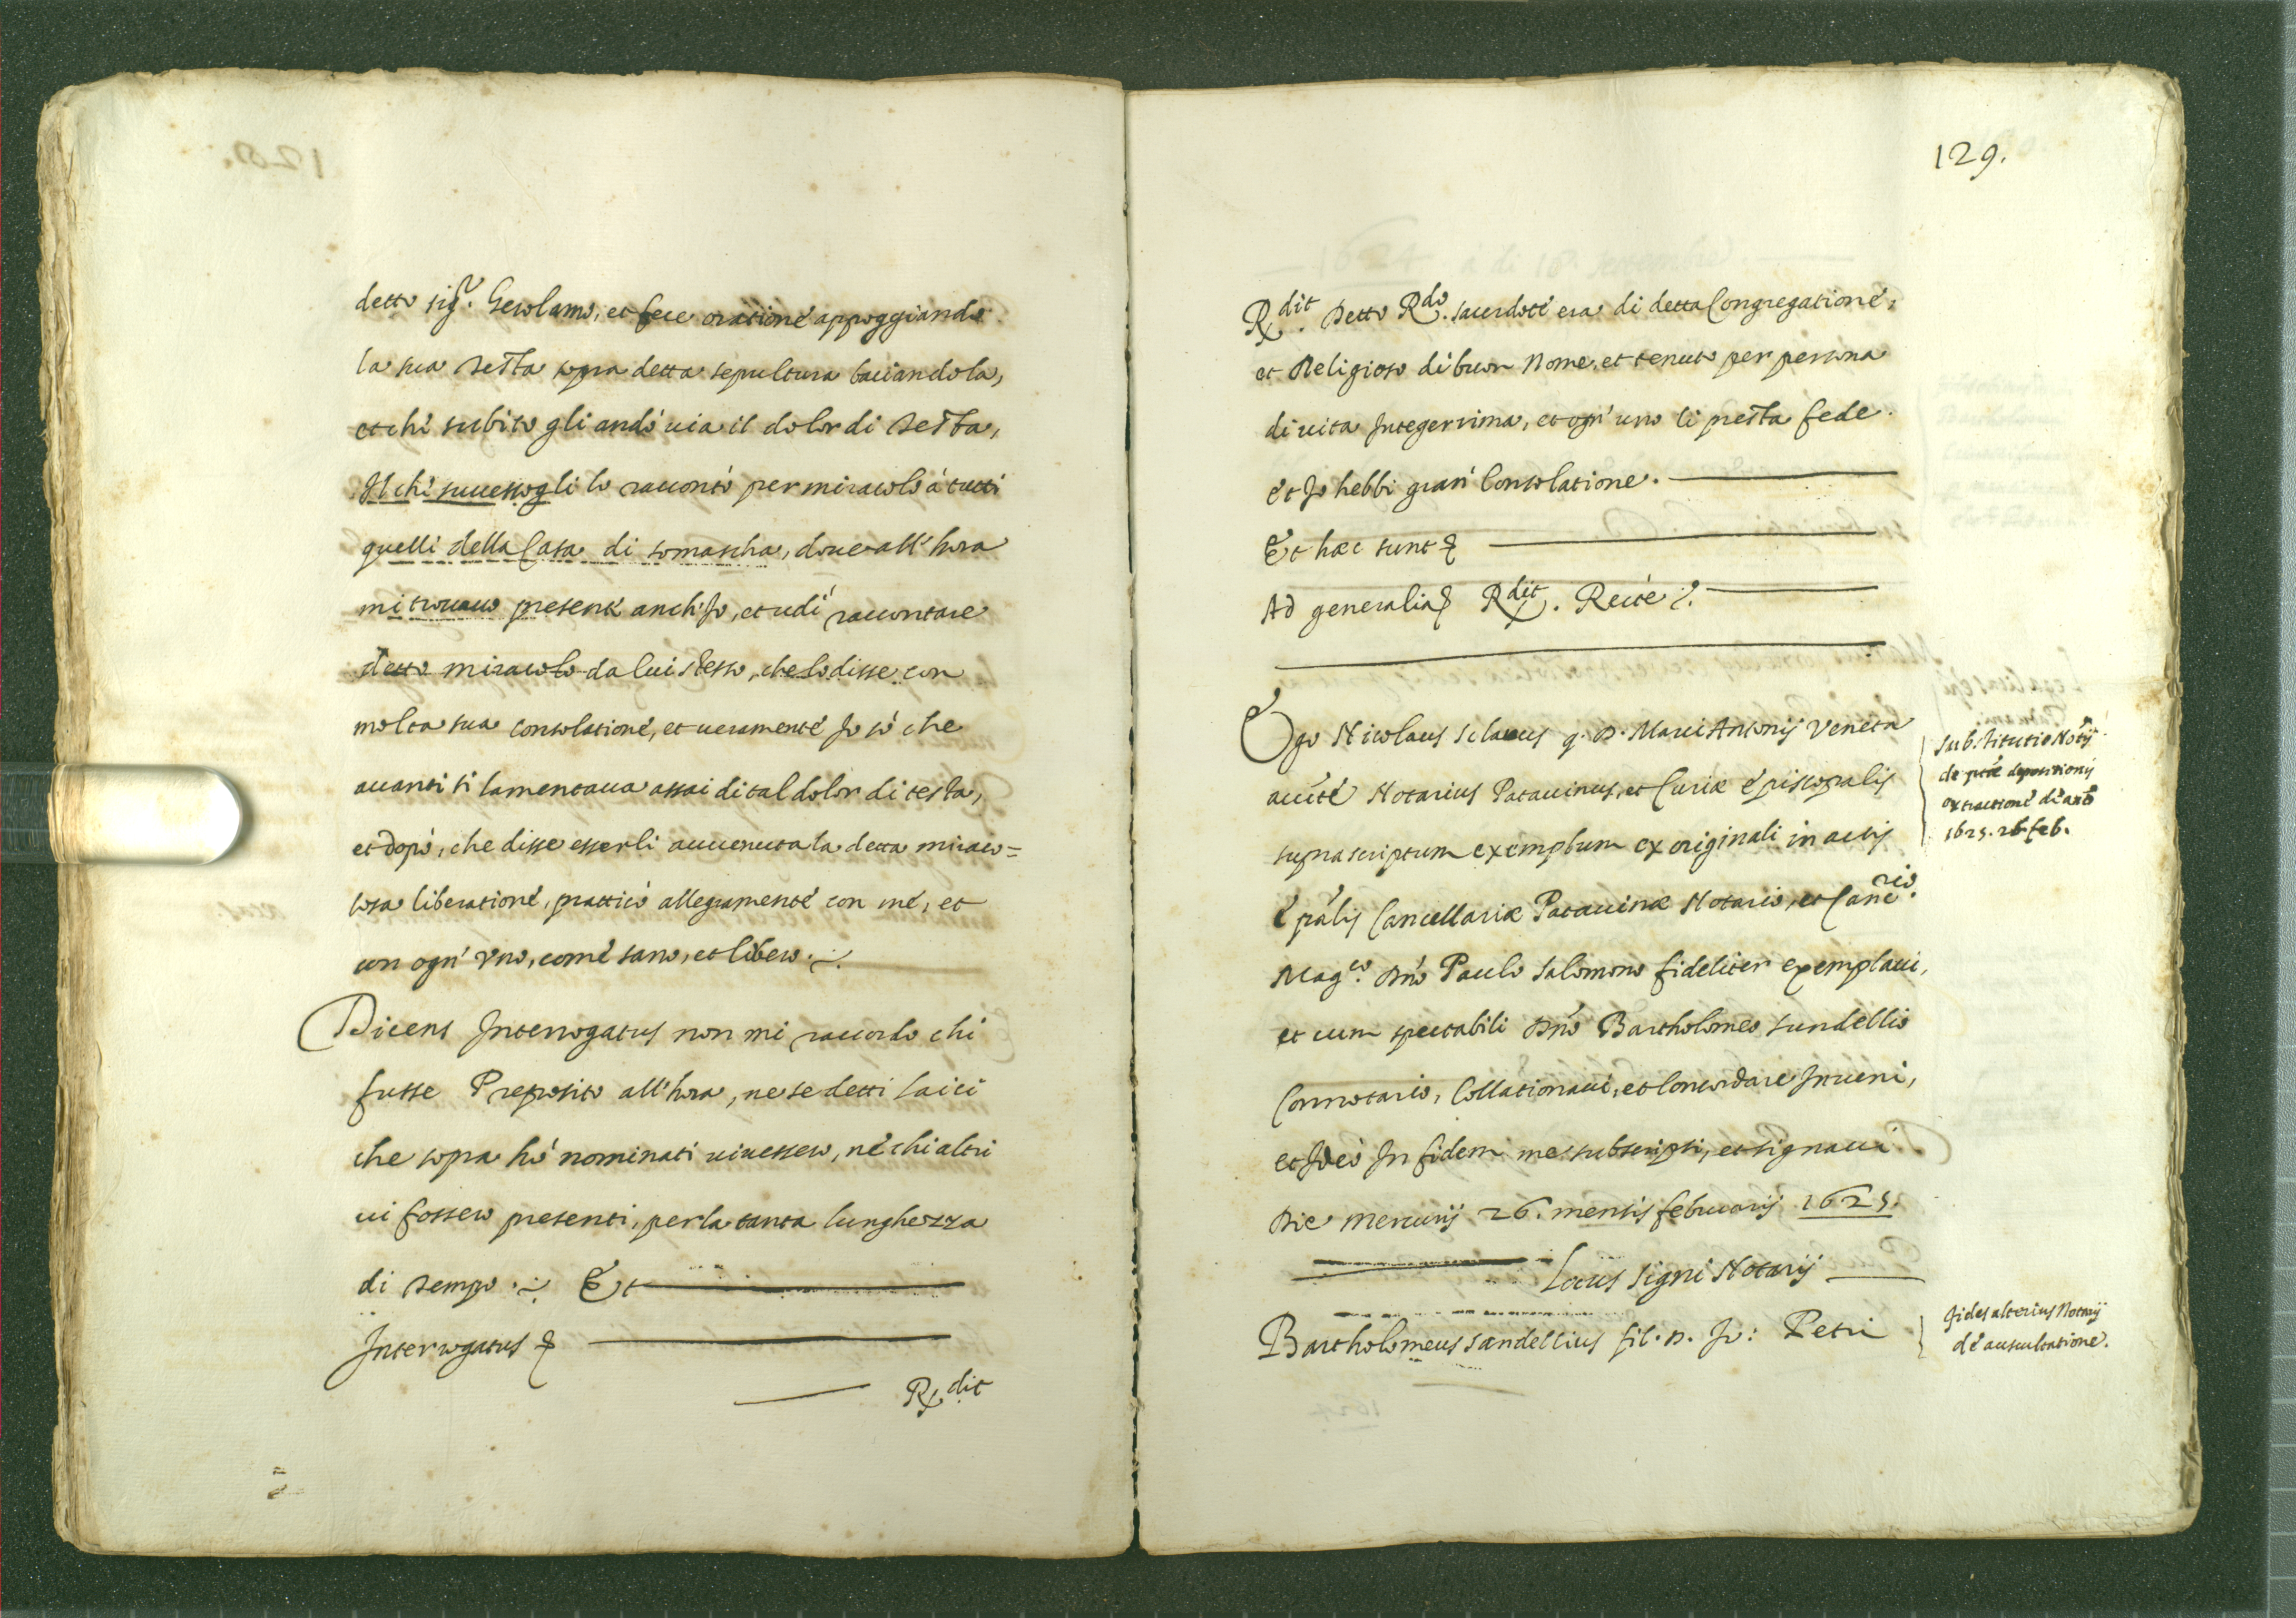 detto sig.r Gerolamo, et fece oratione appoggiando
la sua testa sopra detta sepultura baciandola,
et che subito gli andò uia il dolor di testa,
Il che successogli lo raccontò per miracolo à tutti
quelli della Casa di somascha, doue all'hora
mi trouauo presente anch'Io, et udi raccontare
detto miracolo da lui stesso, che lo disse con
molta sua consolatione, et ueramente Io sò che
auanti si lamentaua assai di tal dolor di testa,
et dopò, che disse esserli auuenuta la detta miraco=
losa liberatione, pratticò allegramente con me, et
con ogn' Vno, come sano, et libero.
Dicens Interrogatus non mi raccordo chi
fusse Preposito all'hora, ne se detti laici
che sopra hò nominati uiuessero, nè chi altri
ui fossero presenti, per la tanta lunghezza
di tempo. Et
Interrogatus &
R.dit
129.
R.dit Detto R.do sacerdote era di detta Congregatione,
et Religioso di buon Nome, et tenuto per persona
di uita Integerrima, et ogn' uno li presta fede
et Io hebbi gran Consolatione.
Et hæc sunt &
Ad generalia & R.dit. Recte.
Ego Nicolaus Sclauus q. D. Marci Antonij Veneta
aucte Notarius Patauinus, et Curiæ Episcopalis
suprascriptum exemplum ex originali in actis
Epalis Cancellariæ Patauinæ Notario, et Canc.rio
Mag.co Dno Paulo Salomono fideliter exemplaui,
et cum spectabili Dno Bartholomeo Sandellio
Connotario, Collationaui, et Concordare Inueni,
et Ideo In fidem me subscripsi, et signaui
Die Mercurij 26. mensis februarij 1625.
Locus signi Notarij
Bartholomeus Sandellius fil. D. Io: Petri
Substitutio Notij
de pte depositionis
extractione de anō
1625. 26. feb.
Fides alterius Notarij
de auscultatione.